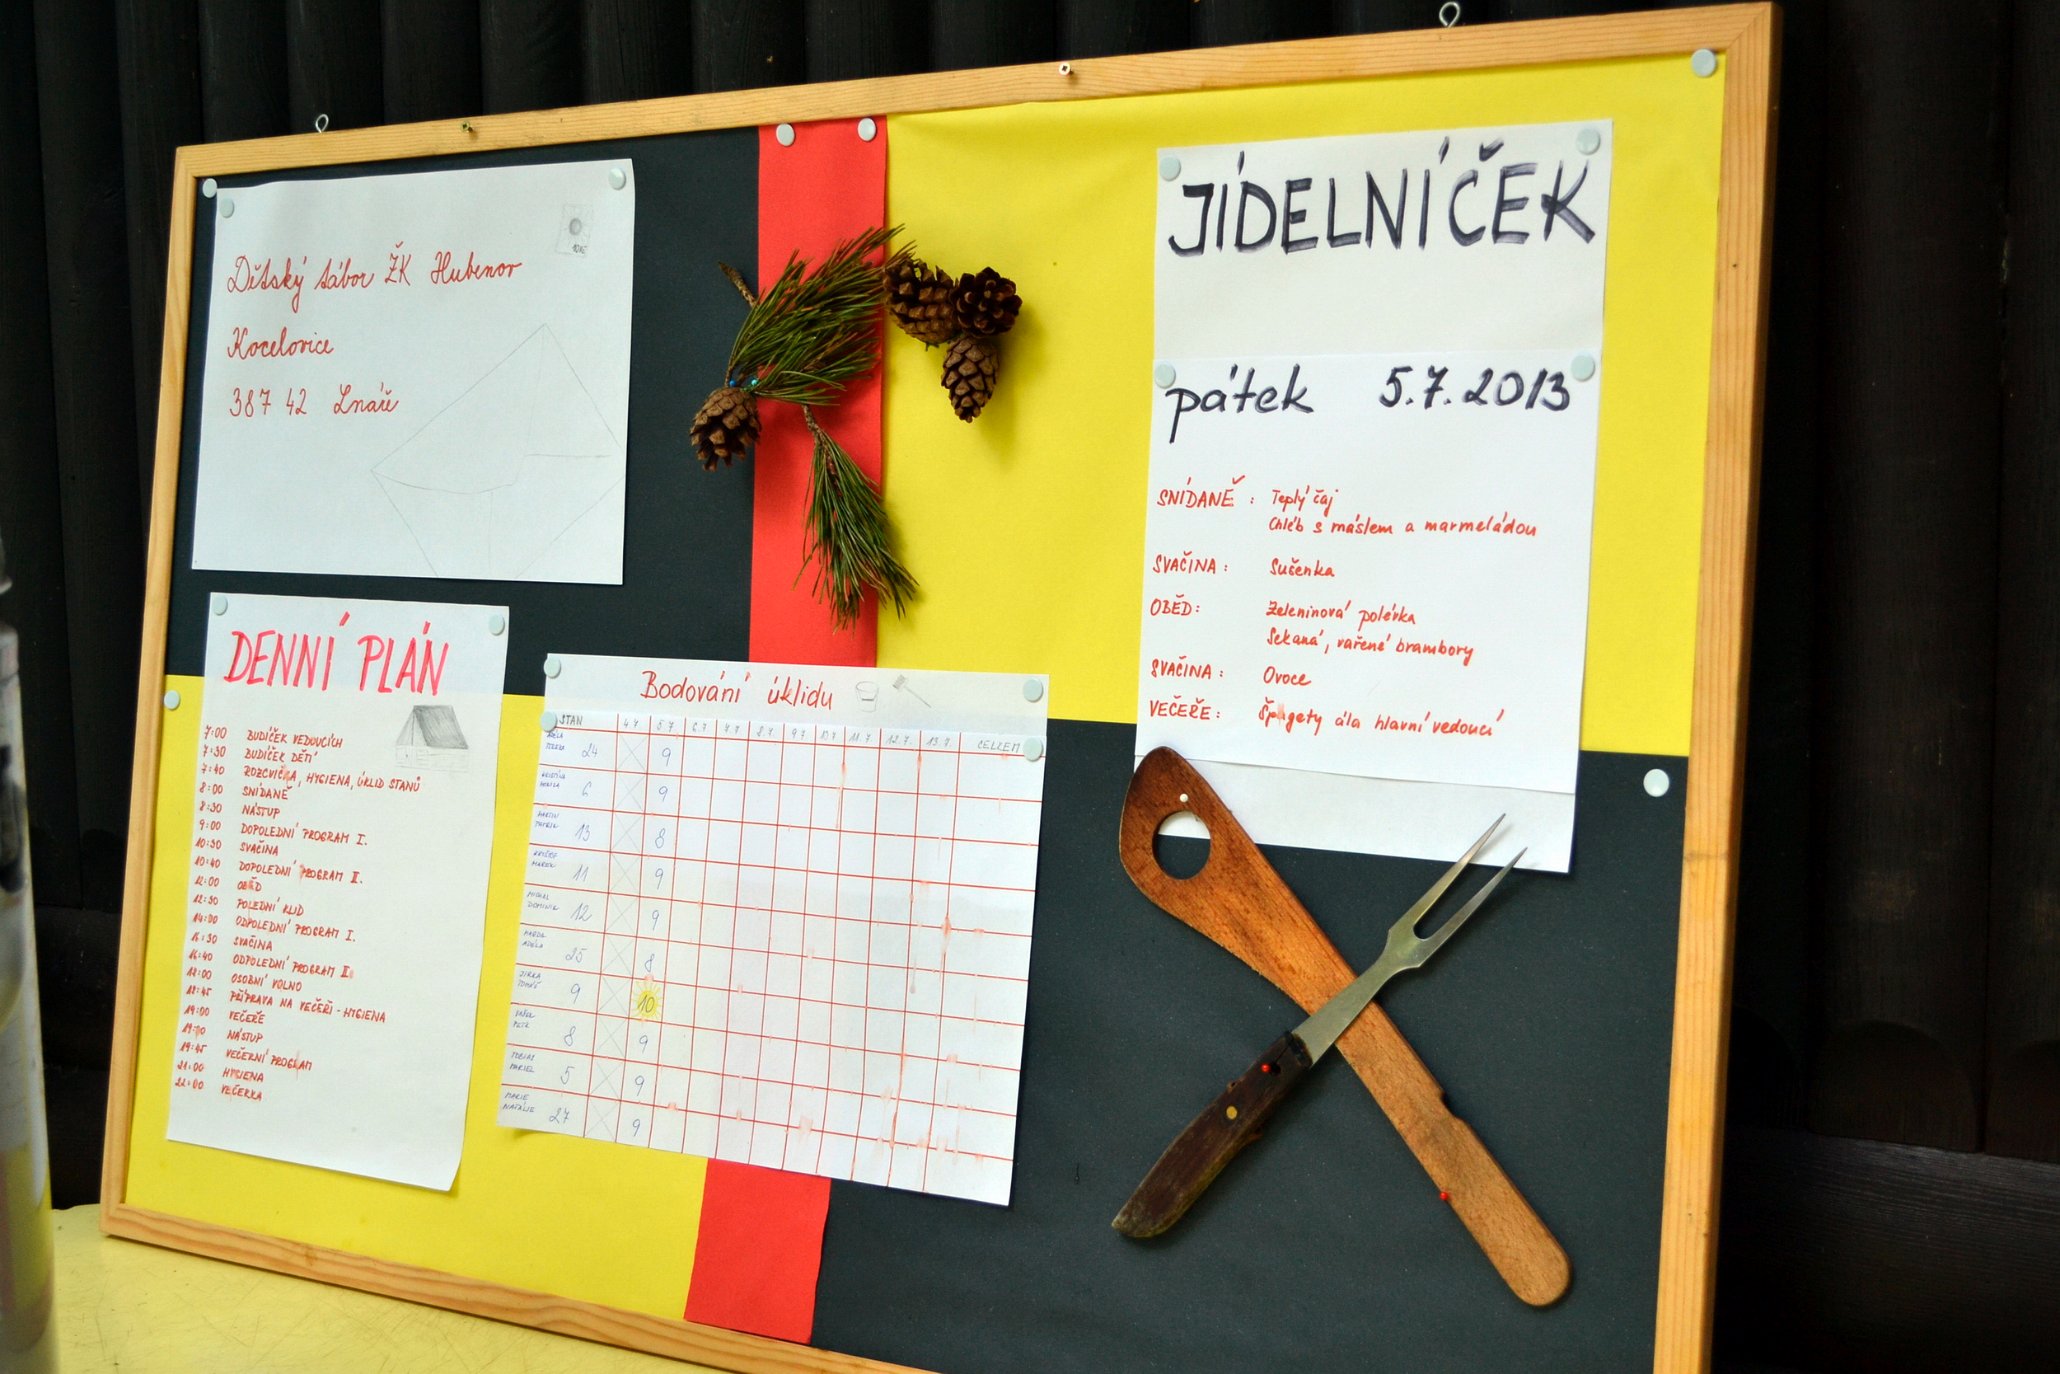 Dětský tábor ŽK Hubenov
Kocelovice
387 42 Lnáře
10 Kč
DENNÍ PLÁN
7:00 BUDÍČEK VEDOUCÍCH
7:30 BUDÍČEK DĚTÍ
7:40 ROZCVIČKA, HYGIENA, ÚKLID STANŮ
8:00 SNÍDANĚ
8:30 NÁSTUP
9:00 DOPOLEDNÍ PROGRAM I.
10:30 SVAČINA
10:40 DOPOLEDNÍ PROGRAM II.
12:00 OBĚD
12:30 POLEDNÍ KLID
14:00 ODPOLEDNÍ PROGRAM I.
16:30 SVAČINA
16:40 ODPOLEDNÍ PROGRAM II.
18:00 OSOBNÍ VOLNO
18:45 PŘÍPRAVA NA VEČEŘI - HYGIENA
19:00 VEČEŘE
NÁSTUP
19:45 VEČERNÍ PROGRAM
21:00 HYGIENA
22:00 VEČERKA
Bodování úklidu
STAN 4.7. 5.7. 6.7. 7.7. 8.7. 9.7. 10.7. 11.7. 12.7. 13.7. CELKEM
24 9
KRISTÝNA
6 9
MARTIN
PATRIK 13 8
KRYŠTOF
MAREK 11 9
MICHAL
DOMINIK 12 9
MAGDA
ADÉLA 25 8
JIRKA
TOMÁŠ 9 10
VAŠEK
PETR 8 9
TOBIAS
MARCEL 5 9
MARIE
NATÁLIE 27 9
JÍDELNÍČEK
pátek 5.7.2013
SNÍDANĚ: Teplý čaj
Chléb s máslem a marmeládou
SVAČINA: Sušenka
OBĚD: Zeleninová polévka
Sekaná, vařené brambory
SVAČINA: Ovoce
VEČEŘE: Špagety ála hlavní vedoucí